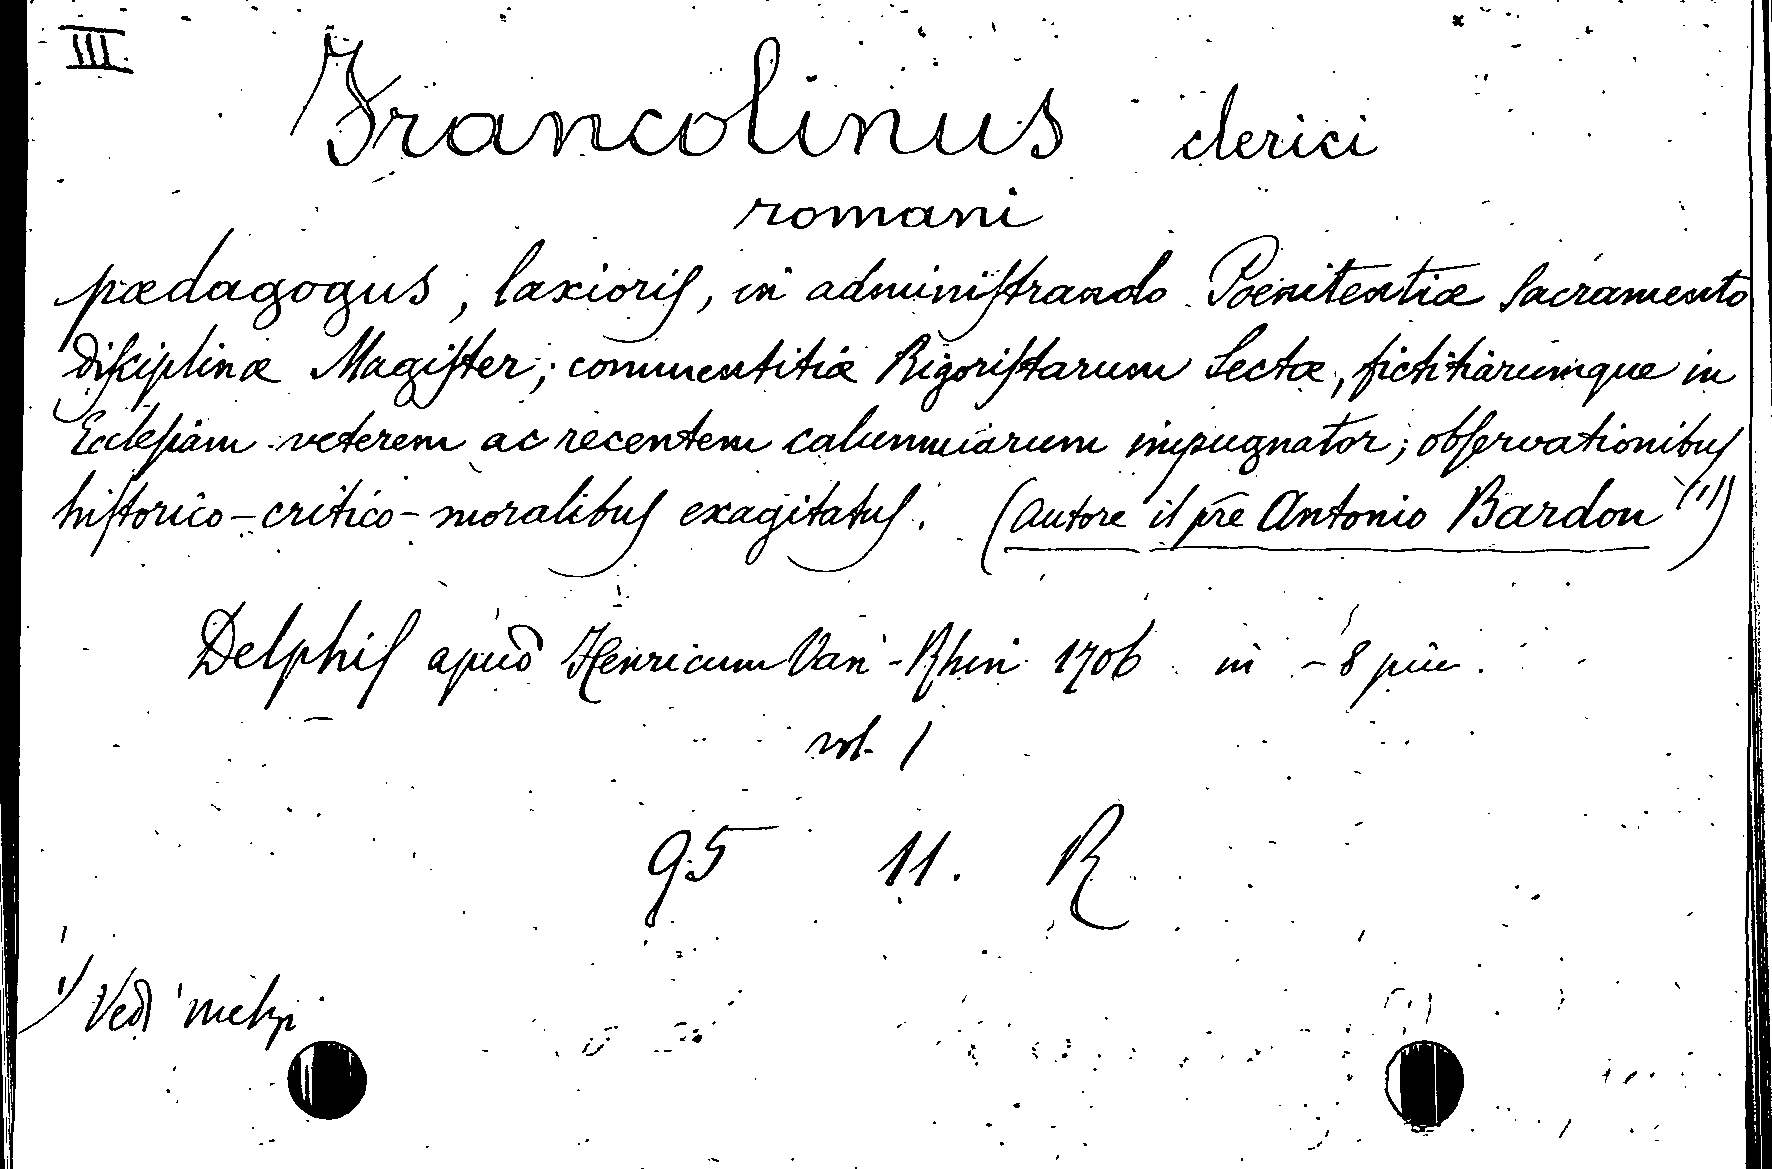 III.
Francolinus clerici
romani
pædagogus, laxioris, in administrando Poenitentiæ Sacramento
Disciplinæ Magister; commentitiæ Rigoristarum Sectæ, fictitiarumque in
Ecclesiam veterem ac recentem calumniarum impugnator; observationibus
historico-critico-moralibus exagitatus. (Autore il pre Antonio Bardon (1))
Delphis apud Henricum Van-Rhin 1706 in -8 picc.
vol. 1
95 11. R
1) Vedi Melzi